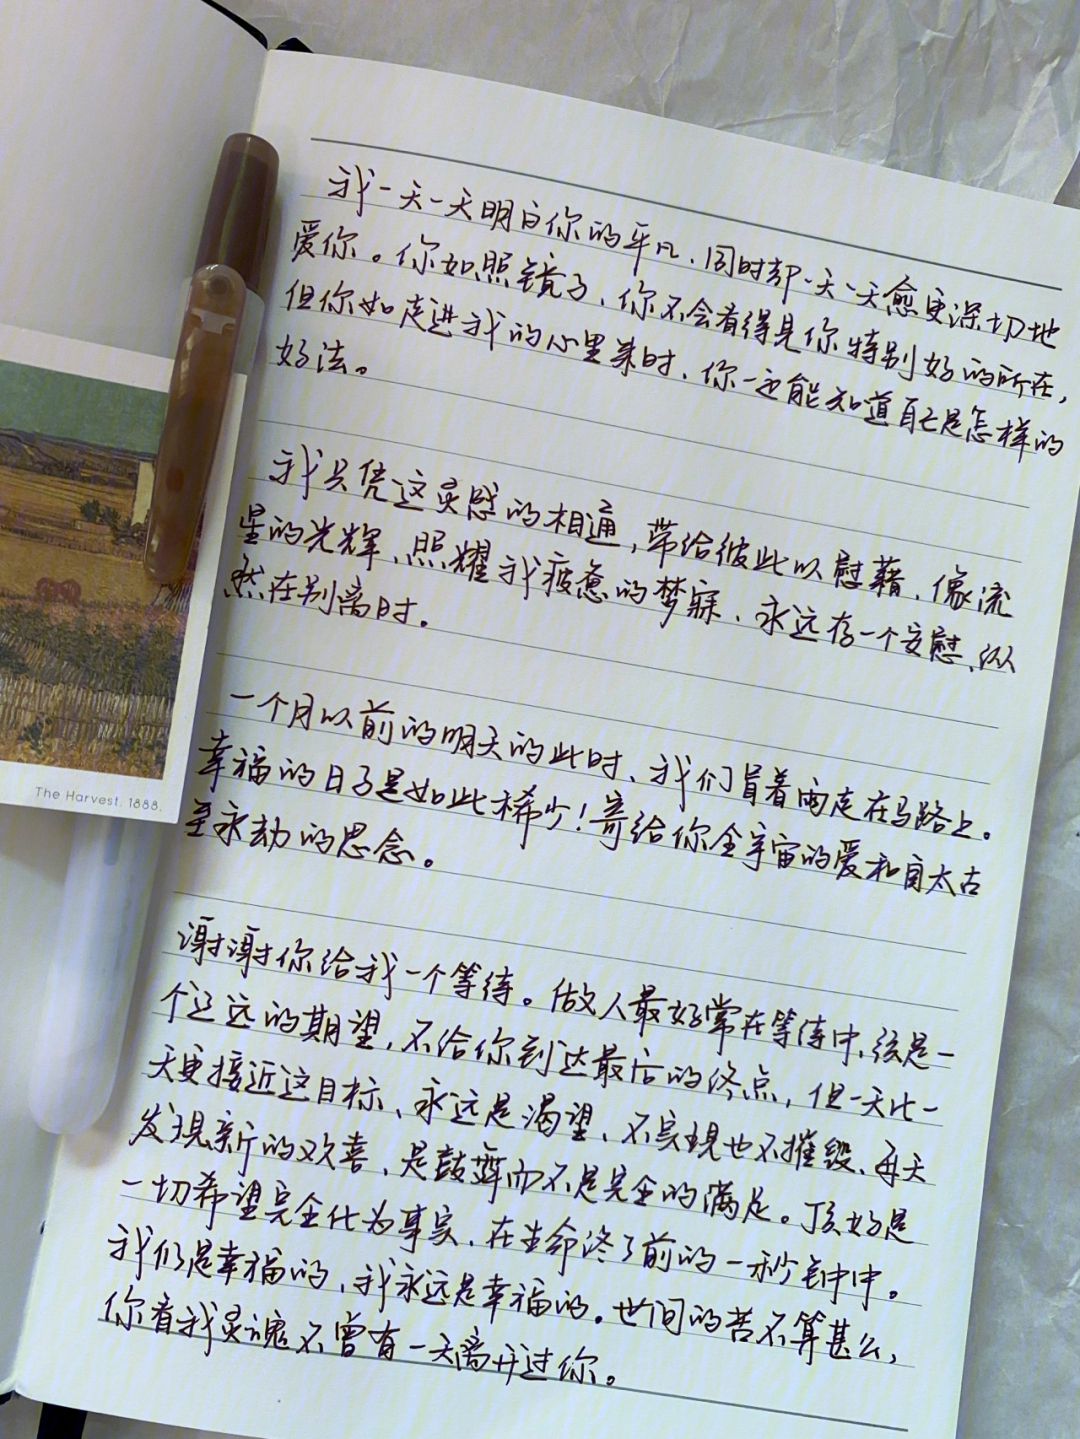 我一天一天明白你的平凡、同时却一天一天愈更深切地
爱你。你如照镜子、你不会看得见你特别好的所在,
但你如走进我的心里来时、你一定能知道自己是怎样的
好法。
我只凭这灵感的相通,带给彼此以慰藉、像流
星的光辉、照耀我疲惫的梦寐、永远存一个安慰、纵
然在别离时。
一个月以前的明天的此时、我们冒着雨走在马路上。
幸福的日子是如此稀少!寄给你全宇宙的爱和自太古
至永劫的思念。
谢谢你给我一个等待。做人最好常在等待中、须是一
个辽远的期望,不给你到达最后的终点,但一天比一
天更接近这目标、永远是渴望、不实现也不摧毁、每天
发现新的欢喜、是鼓舞而不是完全的满足。顶好是
一切希望完全化为事实、在生命终了前的一秒钟中。
我们是幸福的、我永远是幸福的。世间的苦不算甚么,
你看我灵魂不曾有一天离开过你。
The Harvest. 1888.